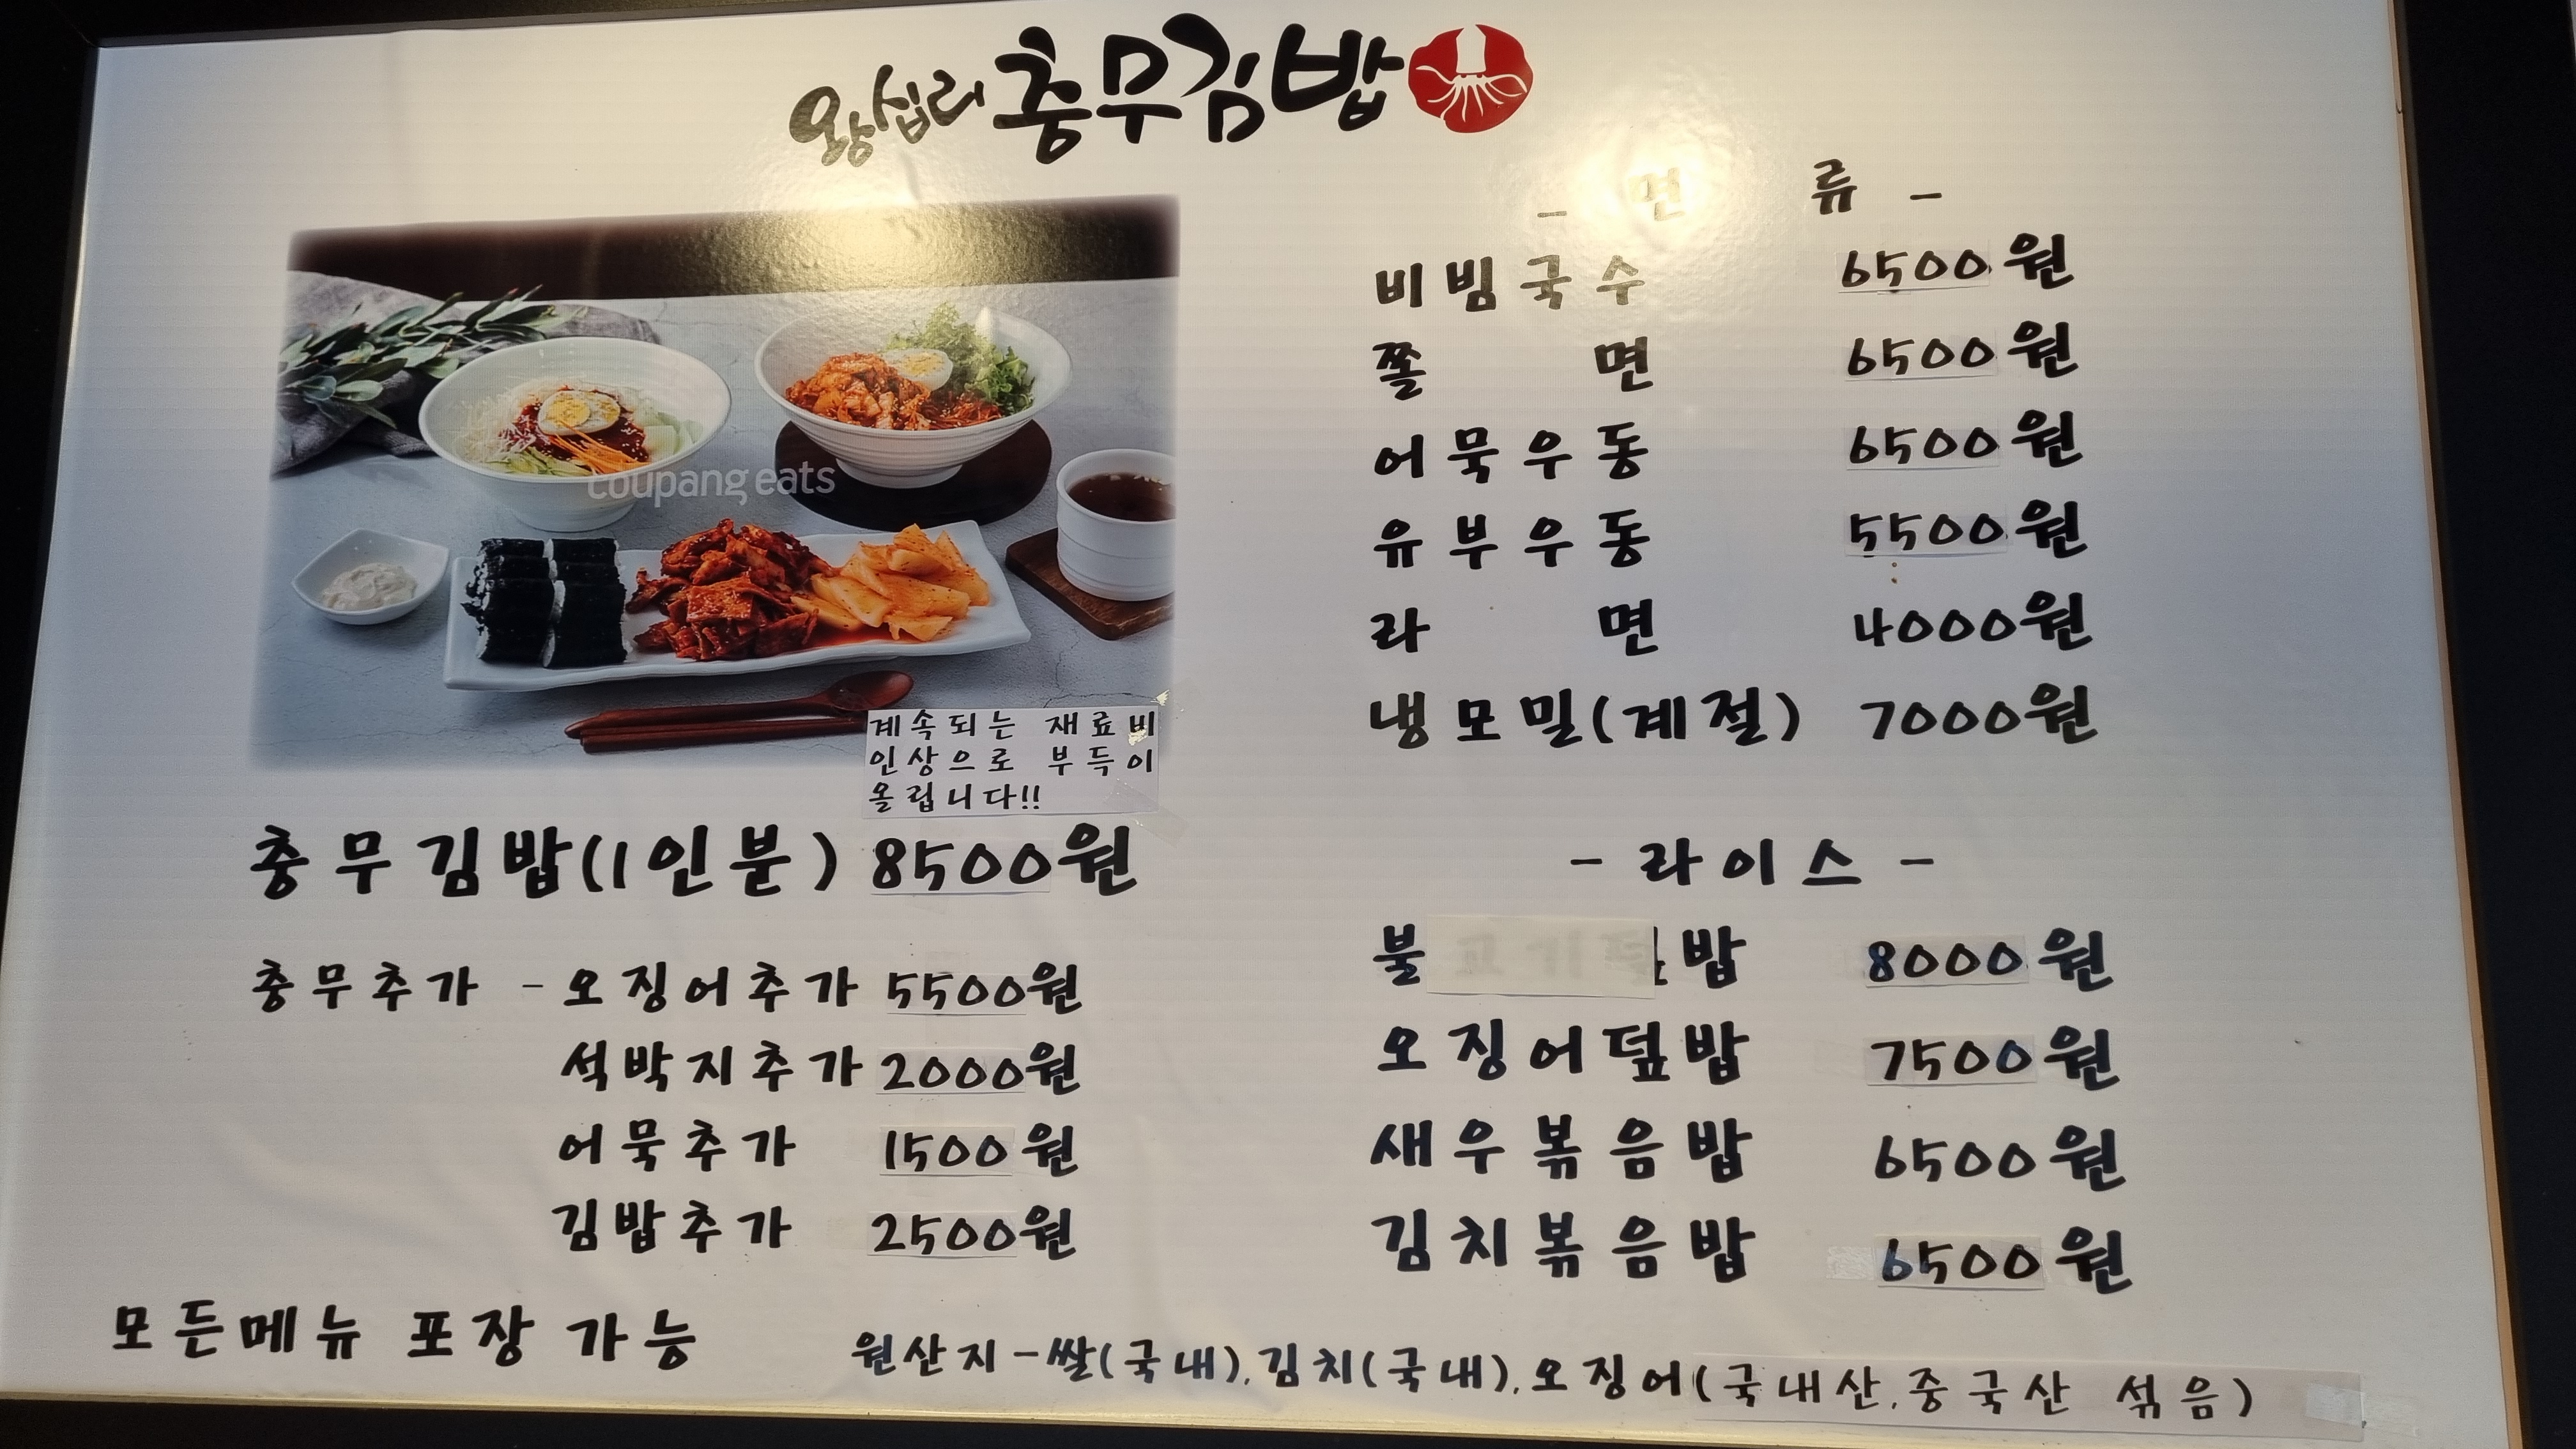 왕십리충무김밥
coupang eats
계속되는 재료비
인상으로 부득이
올립니다!!
충무김밥(1인분) 8500원
충무추가 - 오징어추가 5500원
석박지추가 2000원
어묵추가 1500원
김밥추가 2500원
모든메뉴 포장 가능
- 면 류 -
비빔국수 6500원
쫄 면 6500원
어묵우동 6500원
유부우동 5500원
라 면 4000원
냉모밀(계절) 7000원
- 라이스 -
불고기덮밥 8000원
오징어덮밥 7500원
새우볶음밥 6500원
김치볶음밥 6500원
원산지-쌀(국내),김치(국내),오징어(국내산,중국산 섞음)